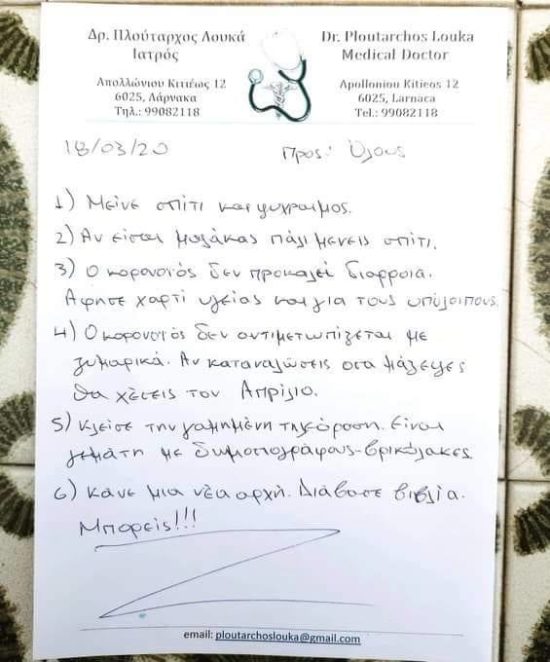 Δρ. Πλούταρχος Λουκά
Ιατρός
Απολλώνιου Κιτιέως 12
6025, Λάρνακα
Τηλ.: 99082118
Dr. Ploutarchos Louka
Medical Doctor
Apolloniou Kitieos 12
6025, Larnaca
Tel.: 99082118
18/03/20
Προς: Όλους
1) Μείνε σπίτι και ψύχραιμος.
2) Αν είσαι μαλάκας πάλι μένεις σπίτι.
3) Ο κορονοϊός δεν προκαλεί διάρροια.
Αφησε χαρτί υγείας και για τους υπόλοιπους.
4) Ο κορονοϊός δεν αντιμετωπίζεται με
ζυμαρικά. Αν καταναλώσεις όσα μάζεψες
θα χέσεις τον Απρίλιο.
5) Κλείσε την γαμημένη τηλεόραση. Είναι
γεμάτη με δημοσιογράφους-βρικόλακες.
6) Κάνε μια νέα αρχή. Διάβασε βιβλία.
Μπορείς!!!
email: ploutarchoslouka@gmail.com